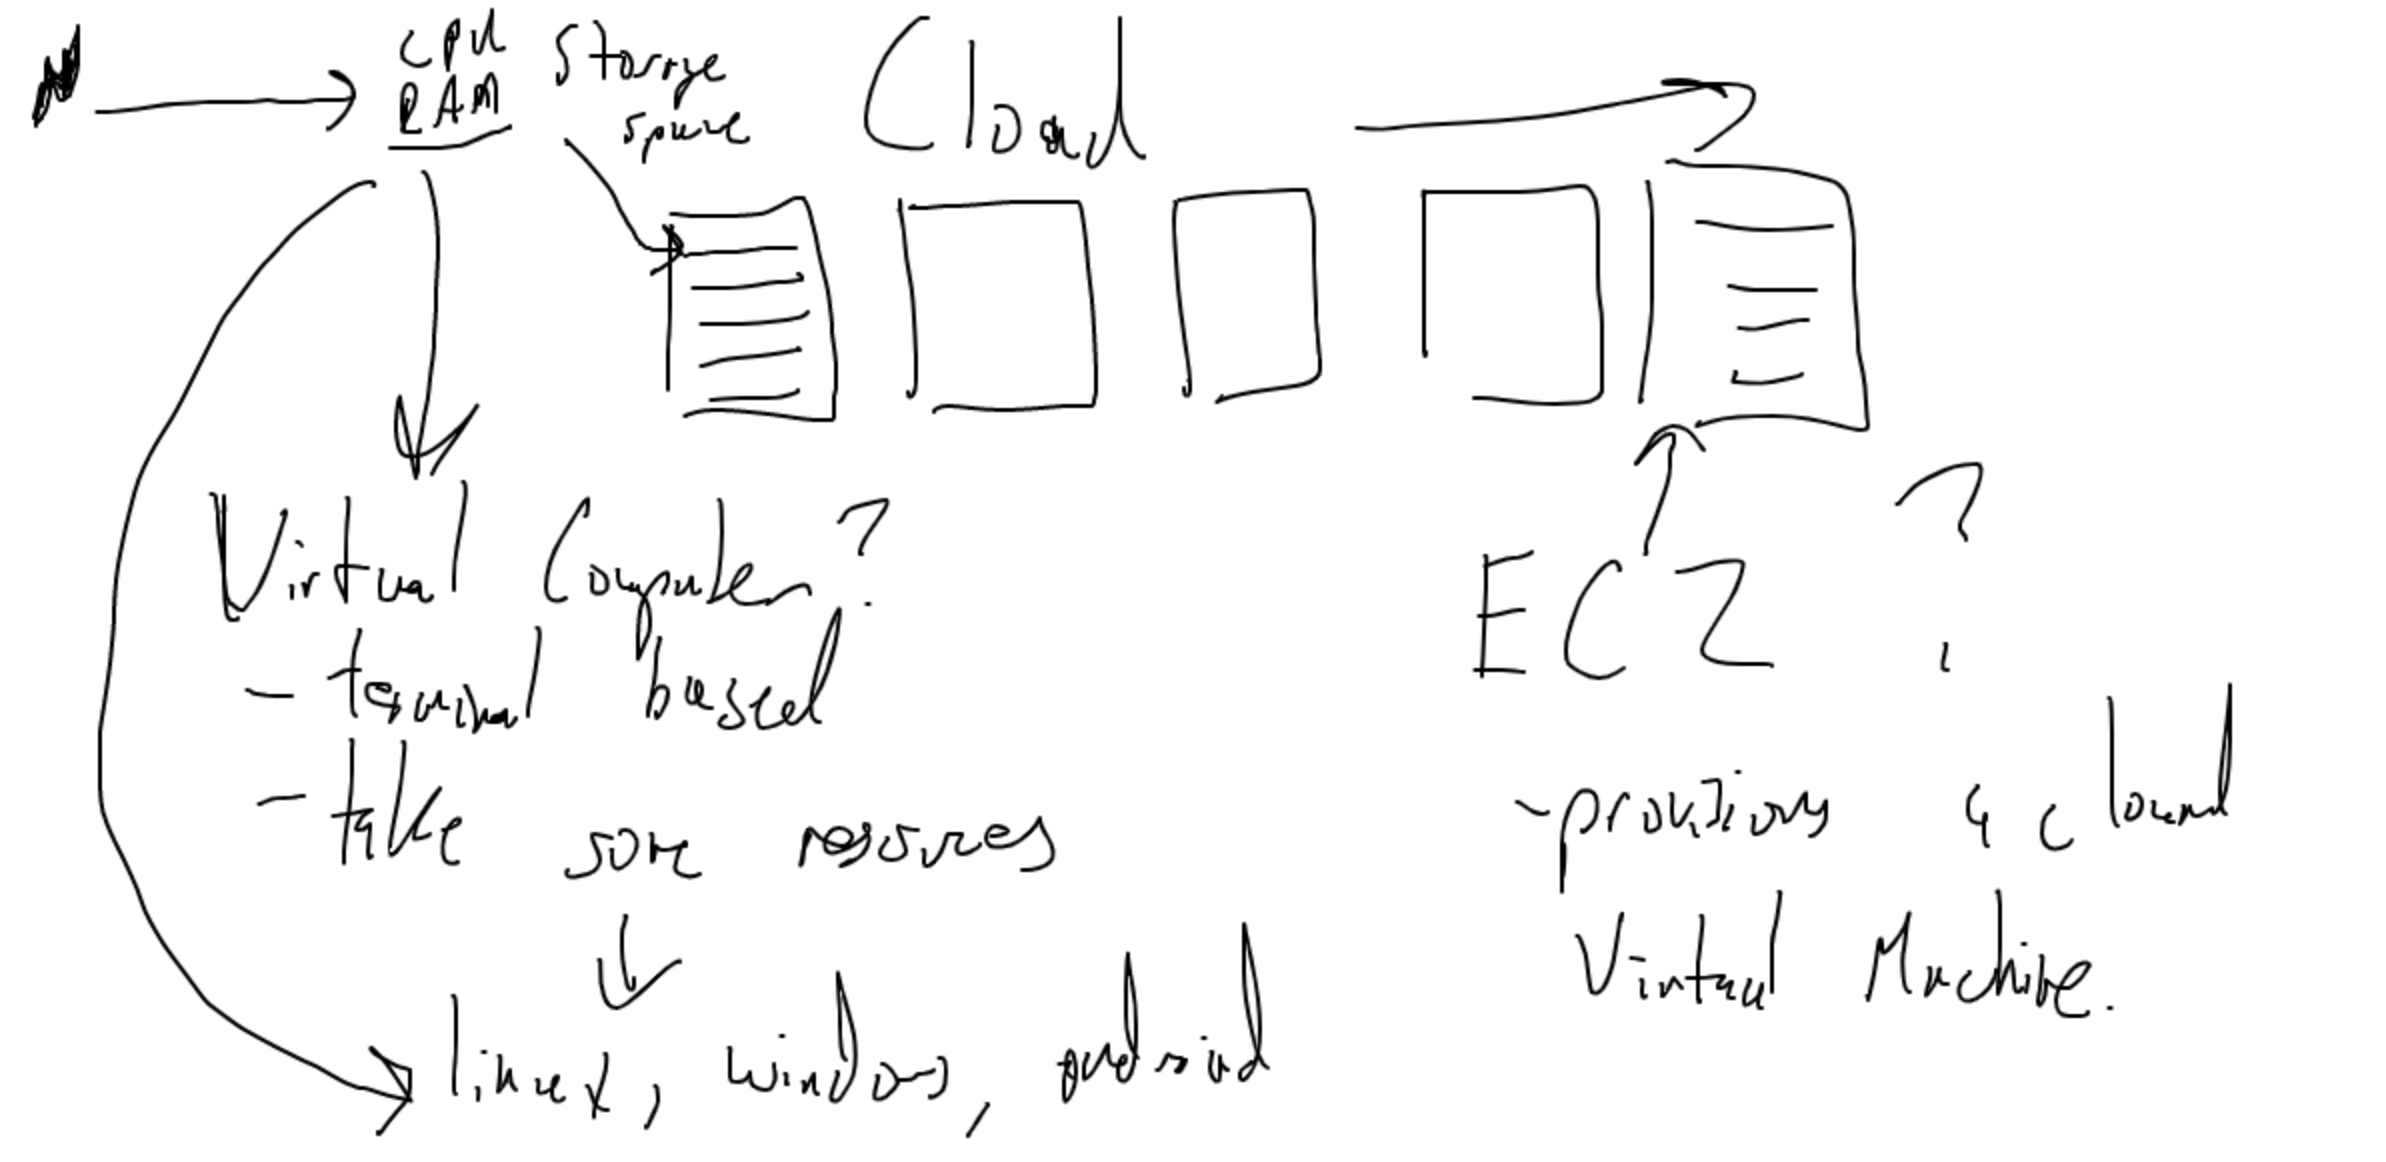 CPU
RAM
Storage
space
Cloud
Virtual Computer?
- terminal based
- take some resources
linux, windows, android
EC2 ?
- provisions a cloud
Virtual Machine.